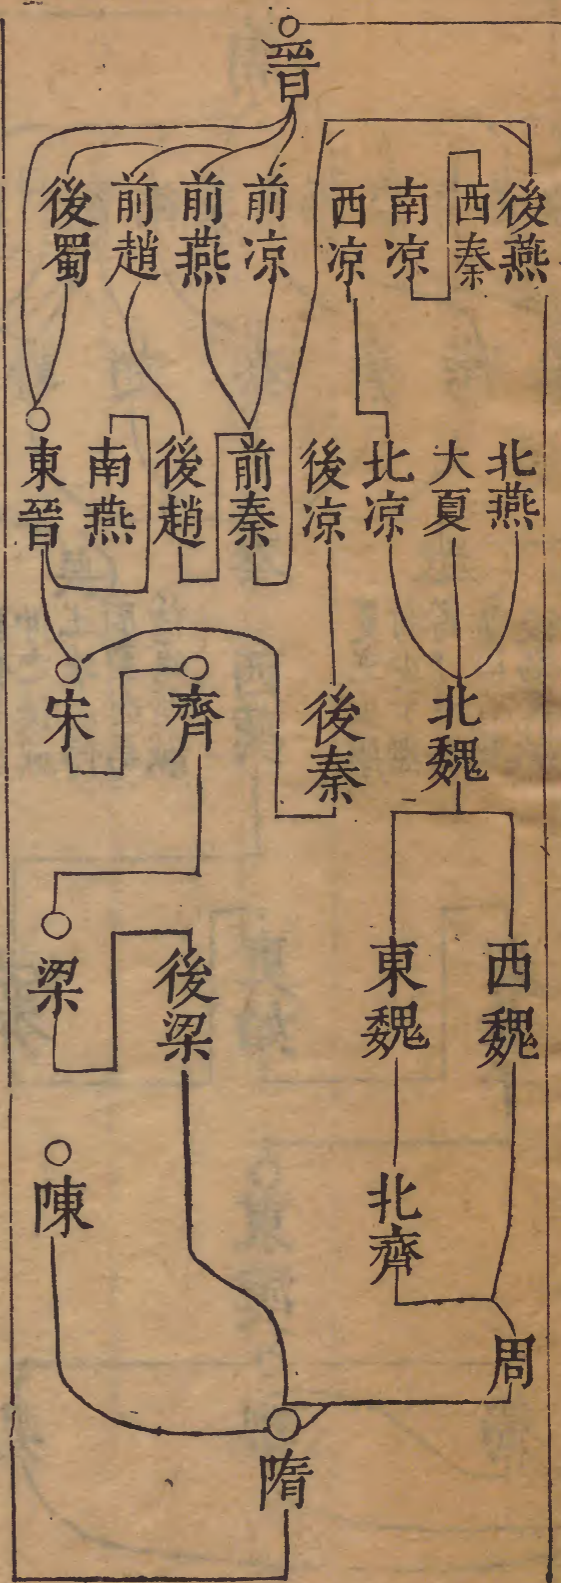 晉
後燕
西秦
南凉
西凉
前凉
前燕
前趙
後蜀
北燕
大夏
北凉
後凉
前秦
後趙
南燕
東晉
北魏
後秦
齊
宋
西魏
東魏
後梁
梁
北齊
陳
周
隋